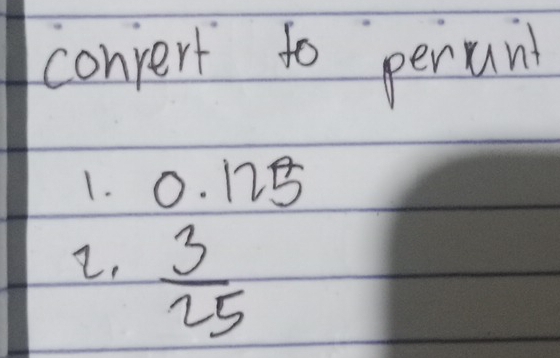 convert to percent
1. 0.125
2. 3/25